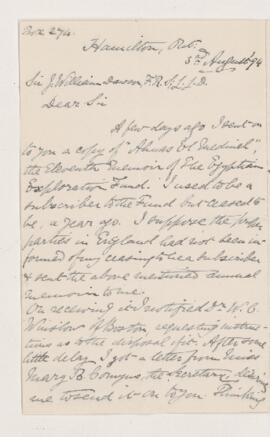 Box 274.
Hamilton, Ont.
3rd August 94
Sir J. William Dawson F.R.S., L.L.D.
Dear Sir
A few days ago I sent on
to you a copy of "Ahnas El Medineh",
the Eleventh Memoir of The Egyptian
Exploration Fund. I used to be a
subscriber to the Fund but ceased to
be, a year ago. I suppose the proper
parties in England had not been in-
formed of my ceasing to be a subscriber
& sent the above mentioned annual
memoir to me.
On receiving it I notified Dr W. C.
Winslow of Boston, requesting instruc-
tions as to the disposal of it. After some
little delay I got a letter from Miss
Mary B. Comyns, the Secretary,
me to send it on to you. Thinking